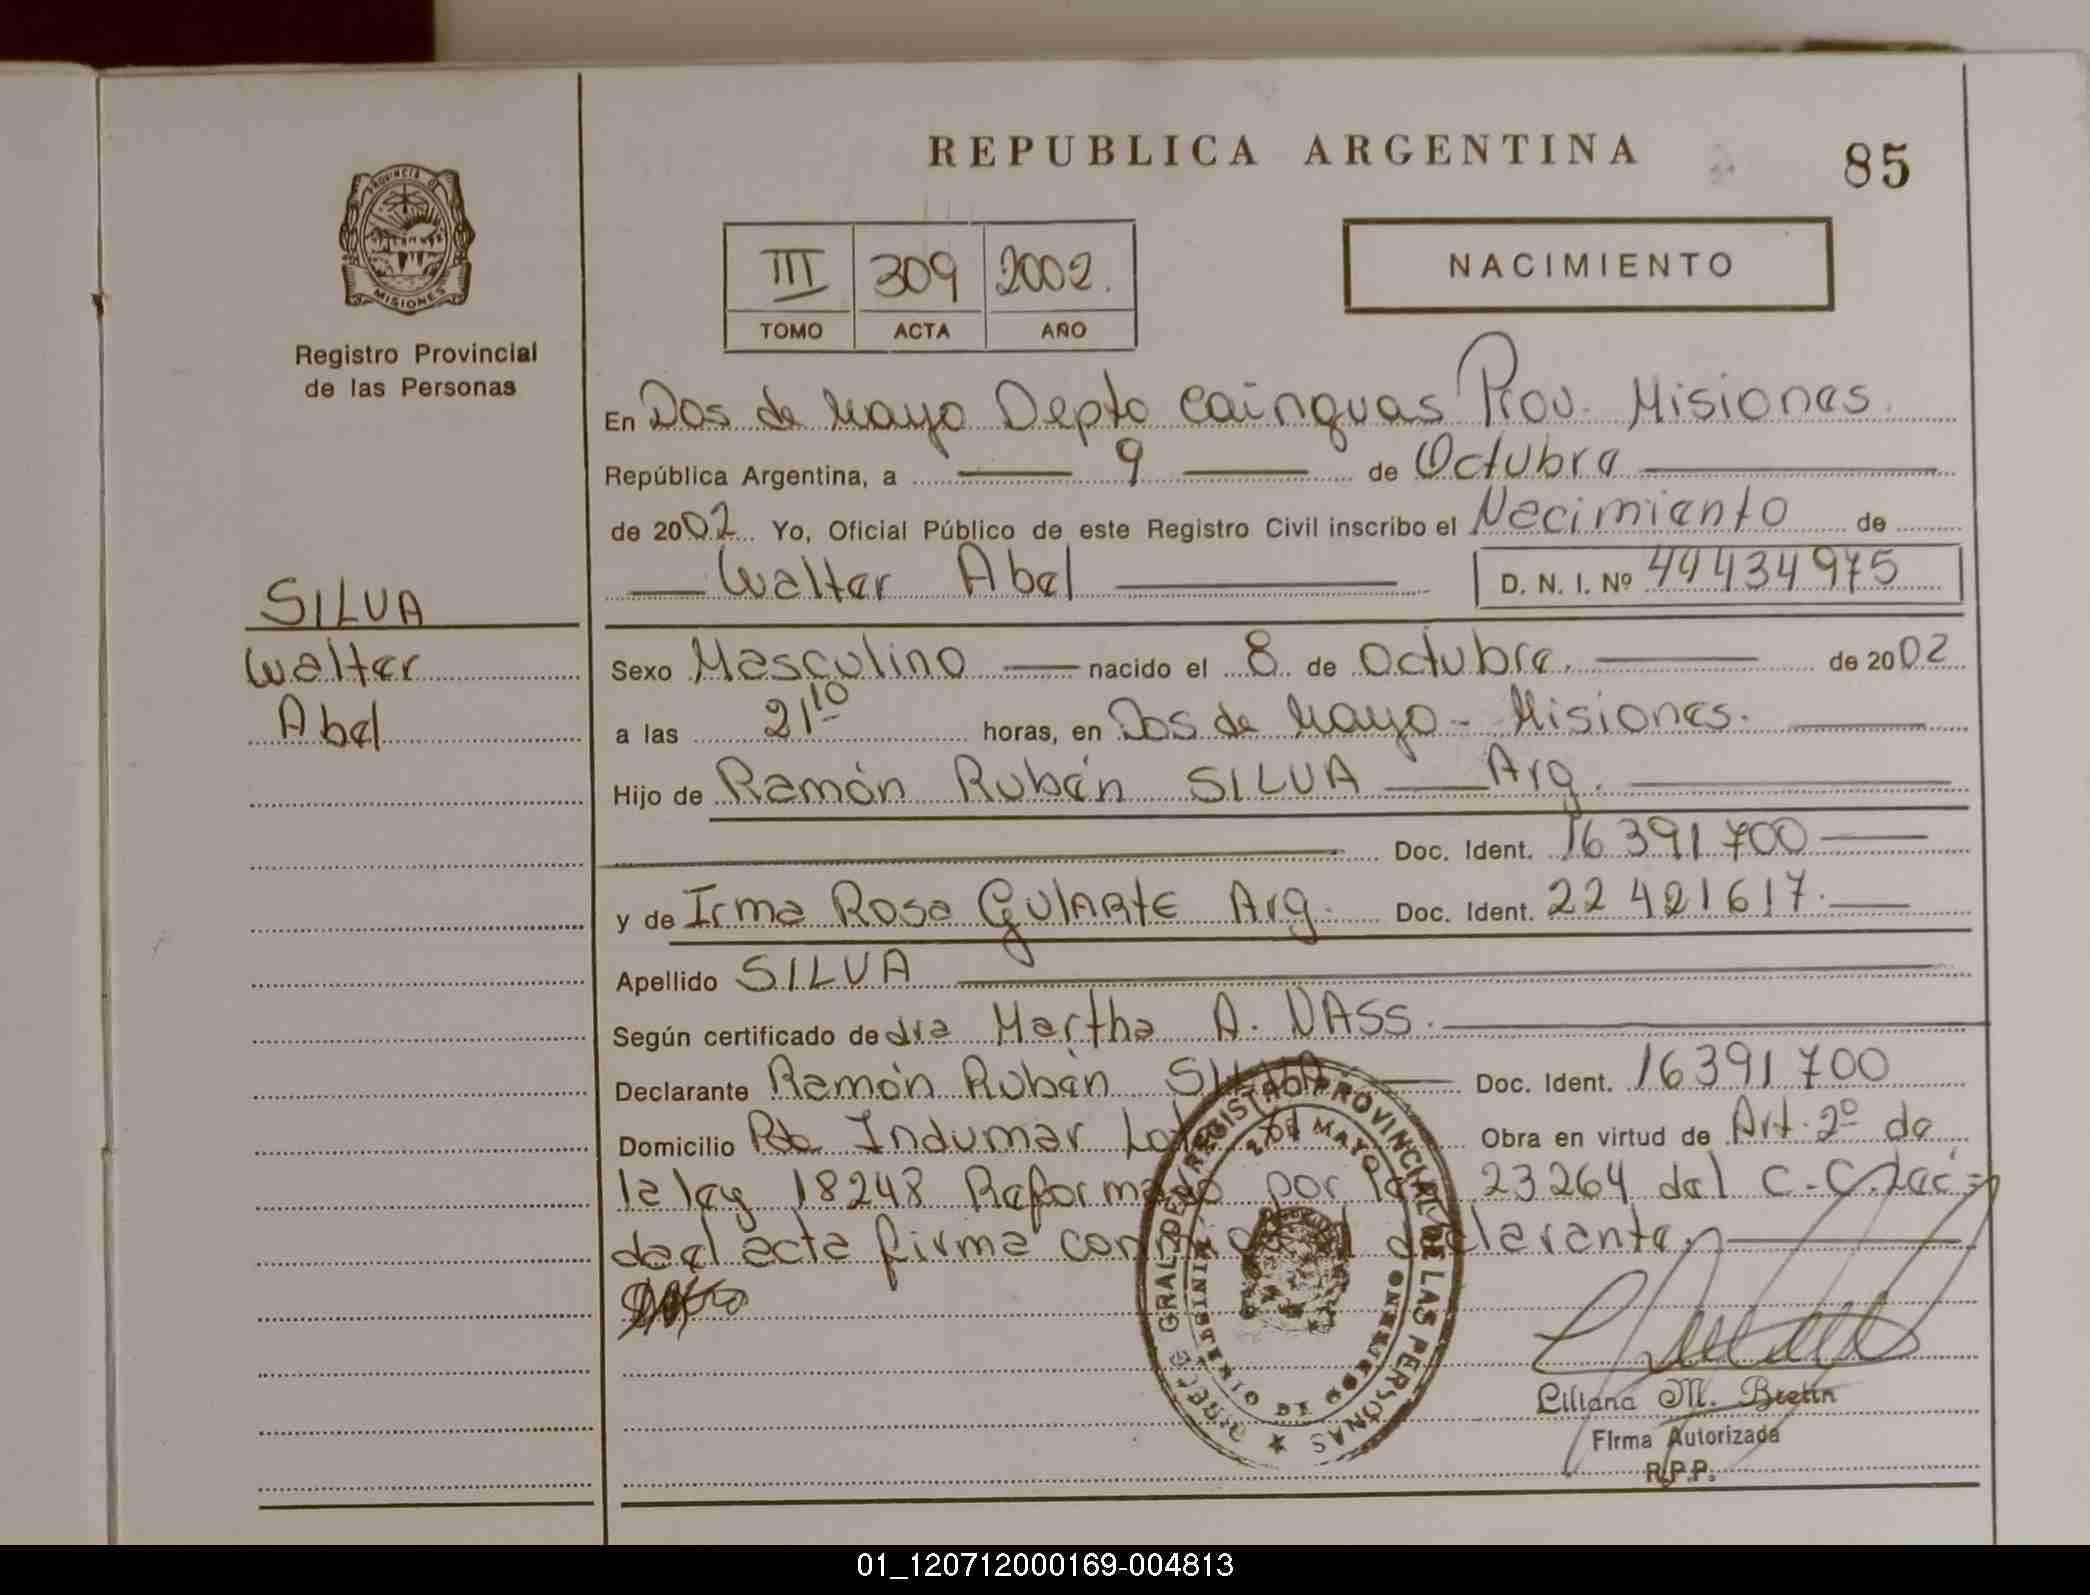 REPUBLICA ARGENTINA
85
PROVINCIA DE
MISIONES
Registro Provincial
de las Personas
III 309 2002.
TOMO ACTA AÑO
NACIMIENTO
En Dos de Mayo Depto Cainguas Prov. Misiones.
República Argentina, a 9 de Octubre
de 2002 Yo, Oficial Público de este Registro Civil inscribo el Nacimiento de
Walter Abel D. N. I. Nº 44434975
SILVA
Walter
Abel
Sexo Masculino nacido el 8 de Octubre. de 2002
a las 21 10 horas, en Dos de Mayo - Misiones.
Hijo de Ramón Rubén SILVA Arg.
Doc. Ident. 16391700
y de Irma Rosa GULARTE Arg. Doc. Ident. 22421617.
Apellido SILVA
Según certificado de dra Martha A. NASS.
Declarante Ramón Rubén SILVA Doc. Ident. 16391700
Domicilio Indumar Obra en virtud de Art. 2º de
la ley 18248 Reformado por la 23264 del C.C.
acta firma declarante.
REGISTRO PROVINCIAL DE LAS PERSONAS
2 DE MAYO
Liliana M. Bretin
Firma Autorizada
R.P.P.
01_120712000169-004813